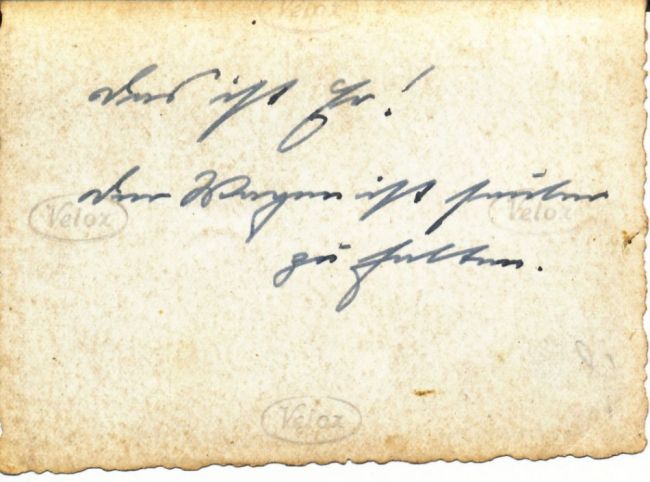 Velox
das ist Er!
der Wagen ist sauber
Velox Velox
zu halten.
Velox